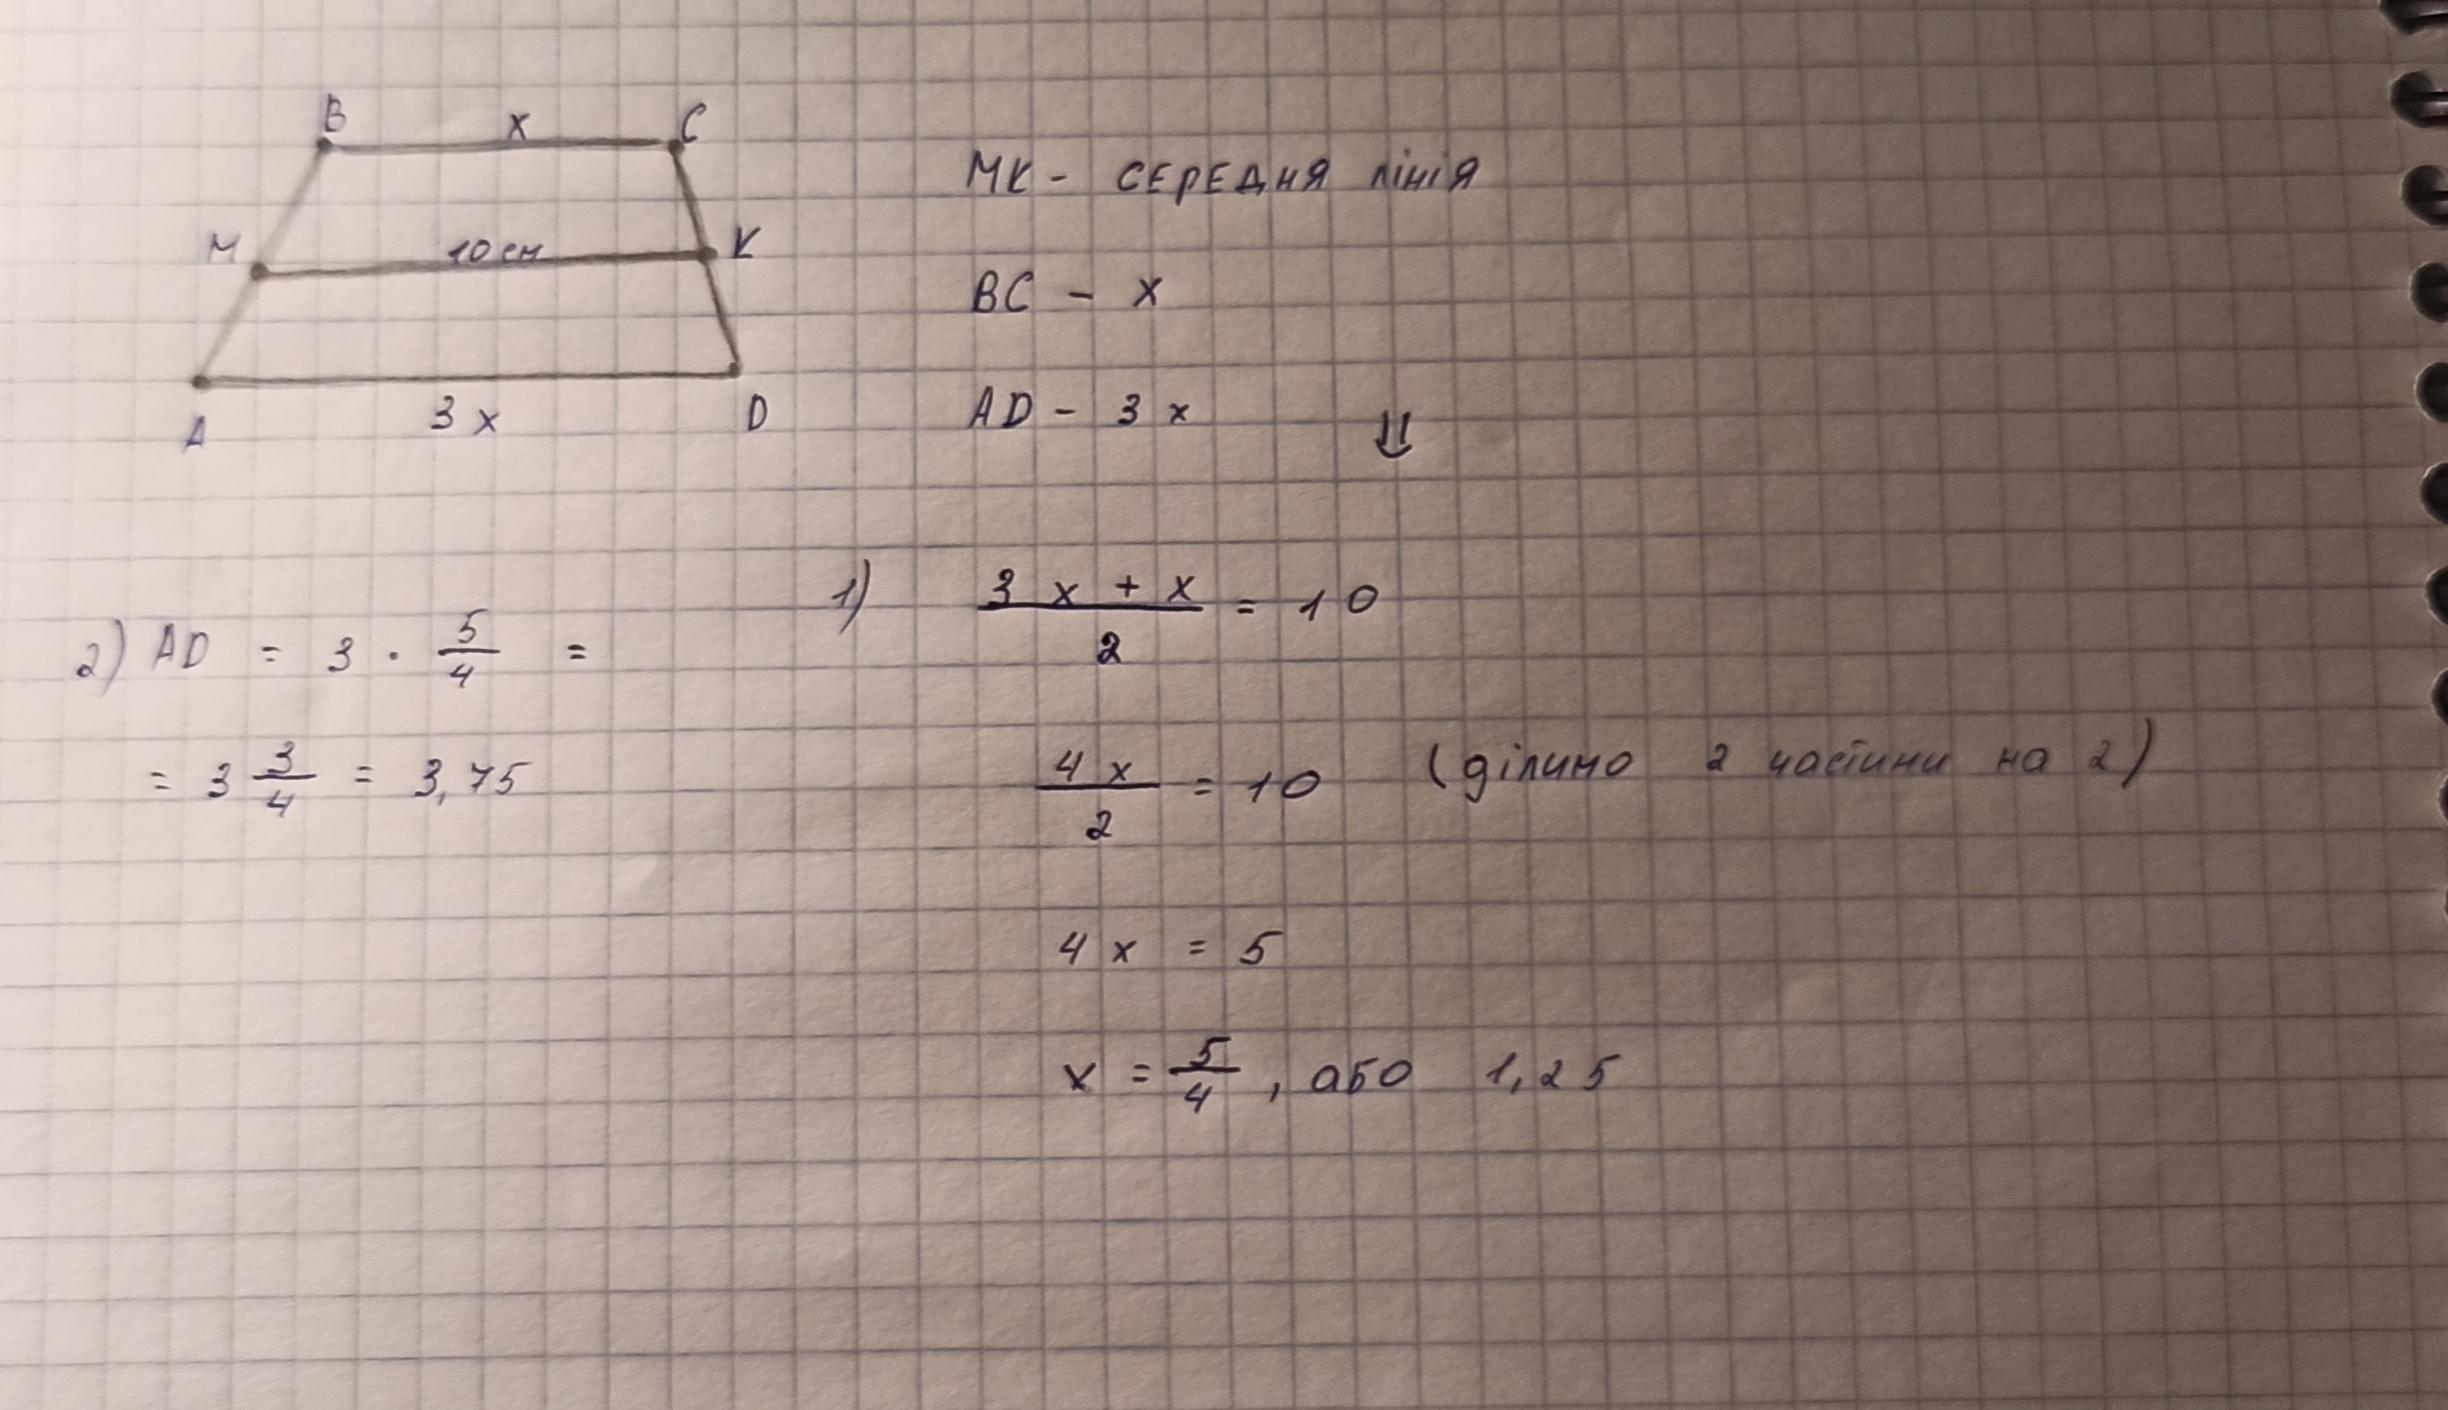 B x C
MK - СЕРЕДНЯ лінія
M 10 см K
BC - x
A 3 x D
AD - 3 x ⇓
1) \frac{3 x + x}{2} = 10
\frac{4 x}{2} = 10 (ділимо 2 частини на 2)
4 x = 5
x = \frac{5}{4}, або 1,25
2) AD = 3 · \frac{5}{4} =
= 3 \frac{3}{4} = 3,75